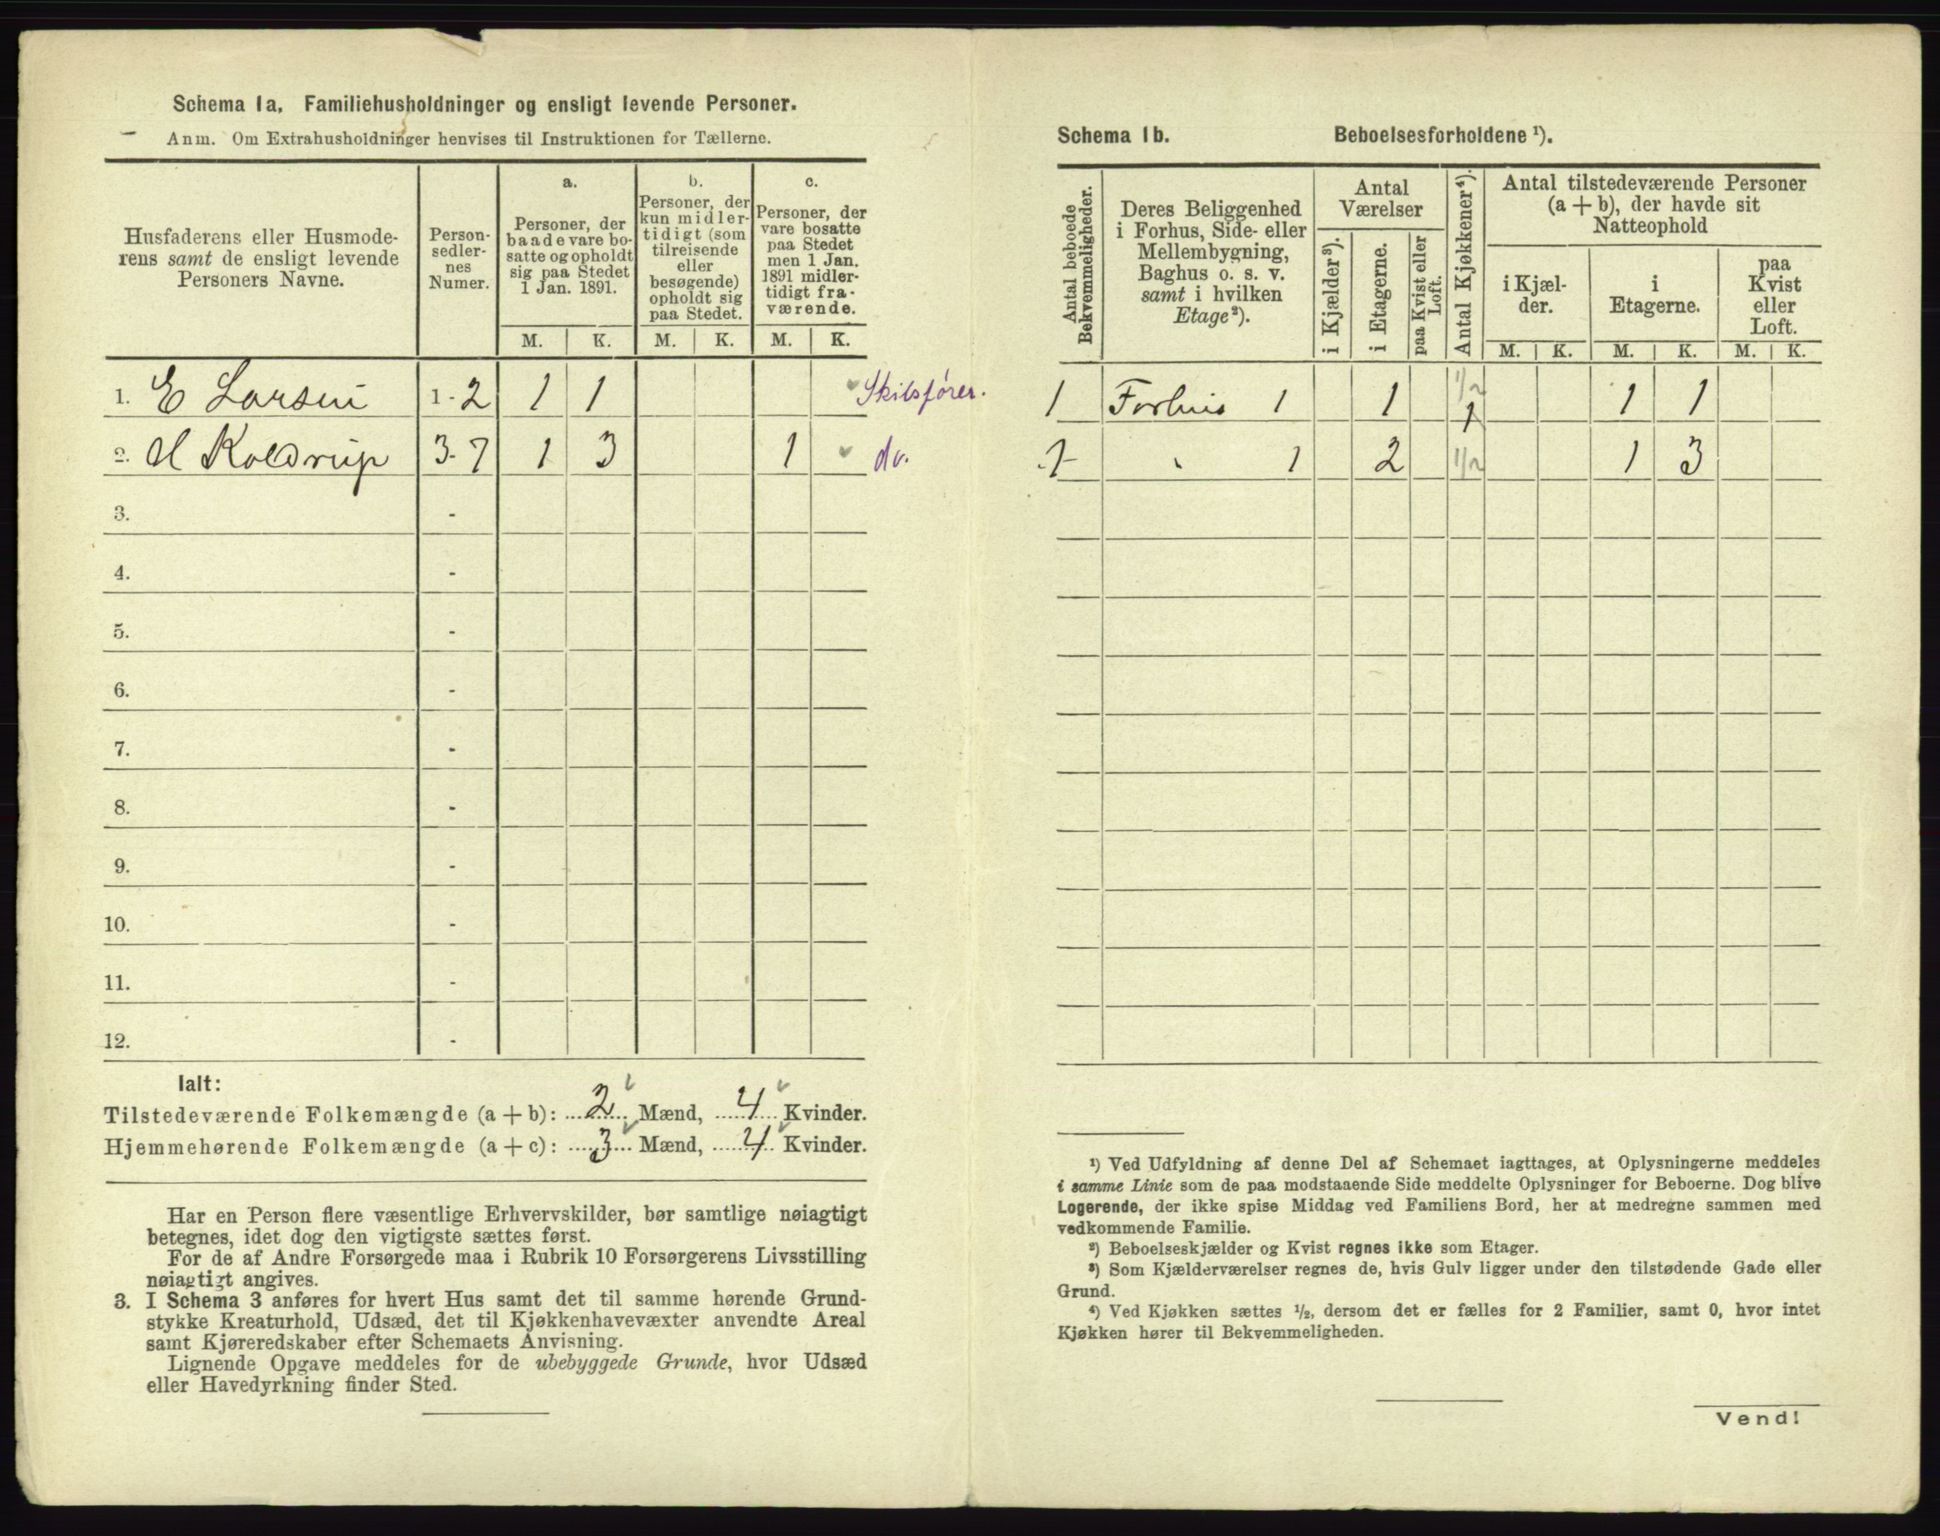 Schema 1a. Familiehusholdninger og ensligt levende Personer.
Anm. Om Extrahusholdninger henvises til Instruktionen for Tællerne.
Husfaderens eller Husmode-
rens samt de ensligt levende
Personers Navne.
Person-
sedler-
nes
Numer.
a.
Personer, der
baade vare bo-
satte og opholdt
sig paa Stedet
1 Jan. 1891.
b.
Personer, der
kun midler-
tidigt (som
tilreisende
eller
besøgende)
opholdt sig
paa Stedet.
c.
Personer, der
vare bosatte
paa Stedet
men 1 Jan.
1891 midler-
tidigt fra-
værende.
M. K. M. K. M. K.
1. E Larsen 1-2 1 1 Skibsfører.
2. M Koldrup 3-7 1 3 1 do.
3. -
4. -
5. -
6. -
7. -
8. -
9. -
10. -
11. -
12. -
Ialt:
Tilstedeværende Folkemængde (a + b): 2 Mænd, 4 Kvinder.
Hjemmehørende Folkemængde (a + c): 3 Mænd, 4 Kvinder.
Har en Person flere væsentlige Erhvervskilder, bør samtlige nøiagtigt
betegnes, idet dog den vigtigste sættes først.
For de af Andre Forsørgede maa i Rubrik 10 Forsørgerens Livsstilling
nøiagtigt angives.
3. I Schema 3 anføres for hvert Hus samt det til samme hørende Grund-
stykke Kreaturhold, Udsæd, det til Kjøkkenhavevæxter anvendte Areal
samt Kjøreredskaber efter Schemaets Anvisning.
Lignende Opgave meddeles for de ubebyggede Grunde, hvor Udsæd
eller Havedyrkning finder Sted.
Schema 1b. Beboelsesforholdene ¹).
Antal beboede
Bekvemmeligheder.
Deres Beliggenhed
i Forhus, Side- eller
Mellembygning,
Baghus o. s. v.
samt i hvilken
Etage²).
Antal
Værelser
i Kjælder³).
i Etagerne.
paa Kvist eller
Loft.
Antal Kjøkkener⁴).
Antal tilstedeværende Personer
(a + b), der havde sit
Natteophold
i Kjæl-
der.
i
Etagerne.
paa
Kvist
eller
Loft.
M. K. M. K. M. K.
1 Forhus 1 1 1/2 1 1 1
1 " 1 2 1/2 1 3
¹) Ved Udfyldning af denne Del af Schemaet iagttages, at Oplysningerne meddeles
i samme Linie som de paa modstaaende Side meddelte Oplysninger for Beboerne. Dog blive
Logerende, der ikke spise Middag ved Familiens Bord, her at medregne sammen med
vedkommende Familie.
²) Beboelseskjælder og Kvist regnes ikke som Etager.
³) Som Kjælderværelser regnes de, hvis Gulv ligger under den tilstødende Gade eller
Grund.
⁴) Ved Kjøkken sættes ½, dersom det er fælles for 2 Familier, samt 0, hvor intet
Kjøkken hører til Bekvemmeligheden.
Vend!